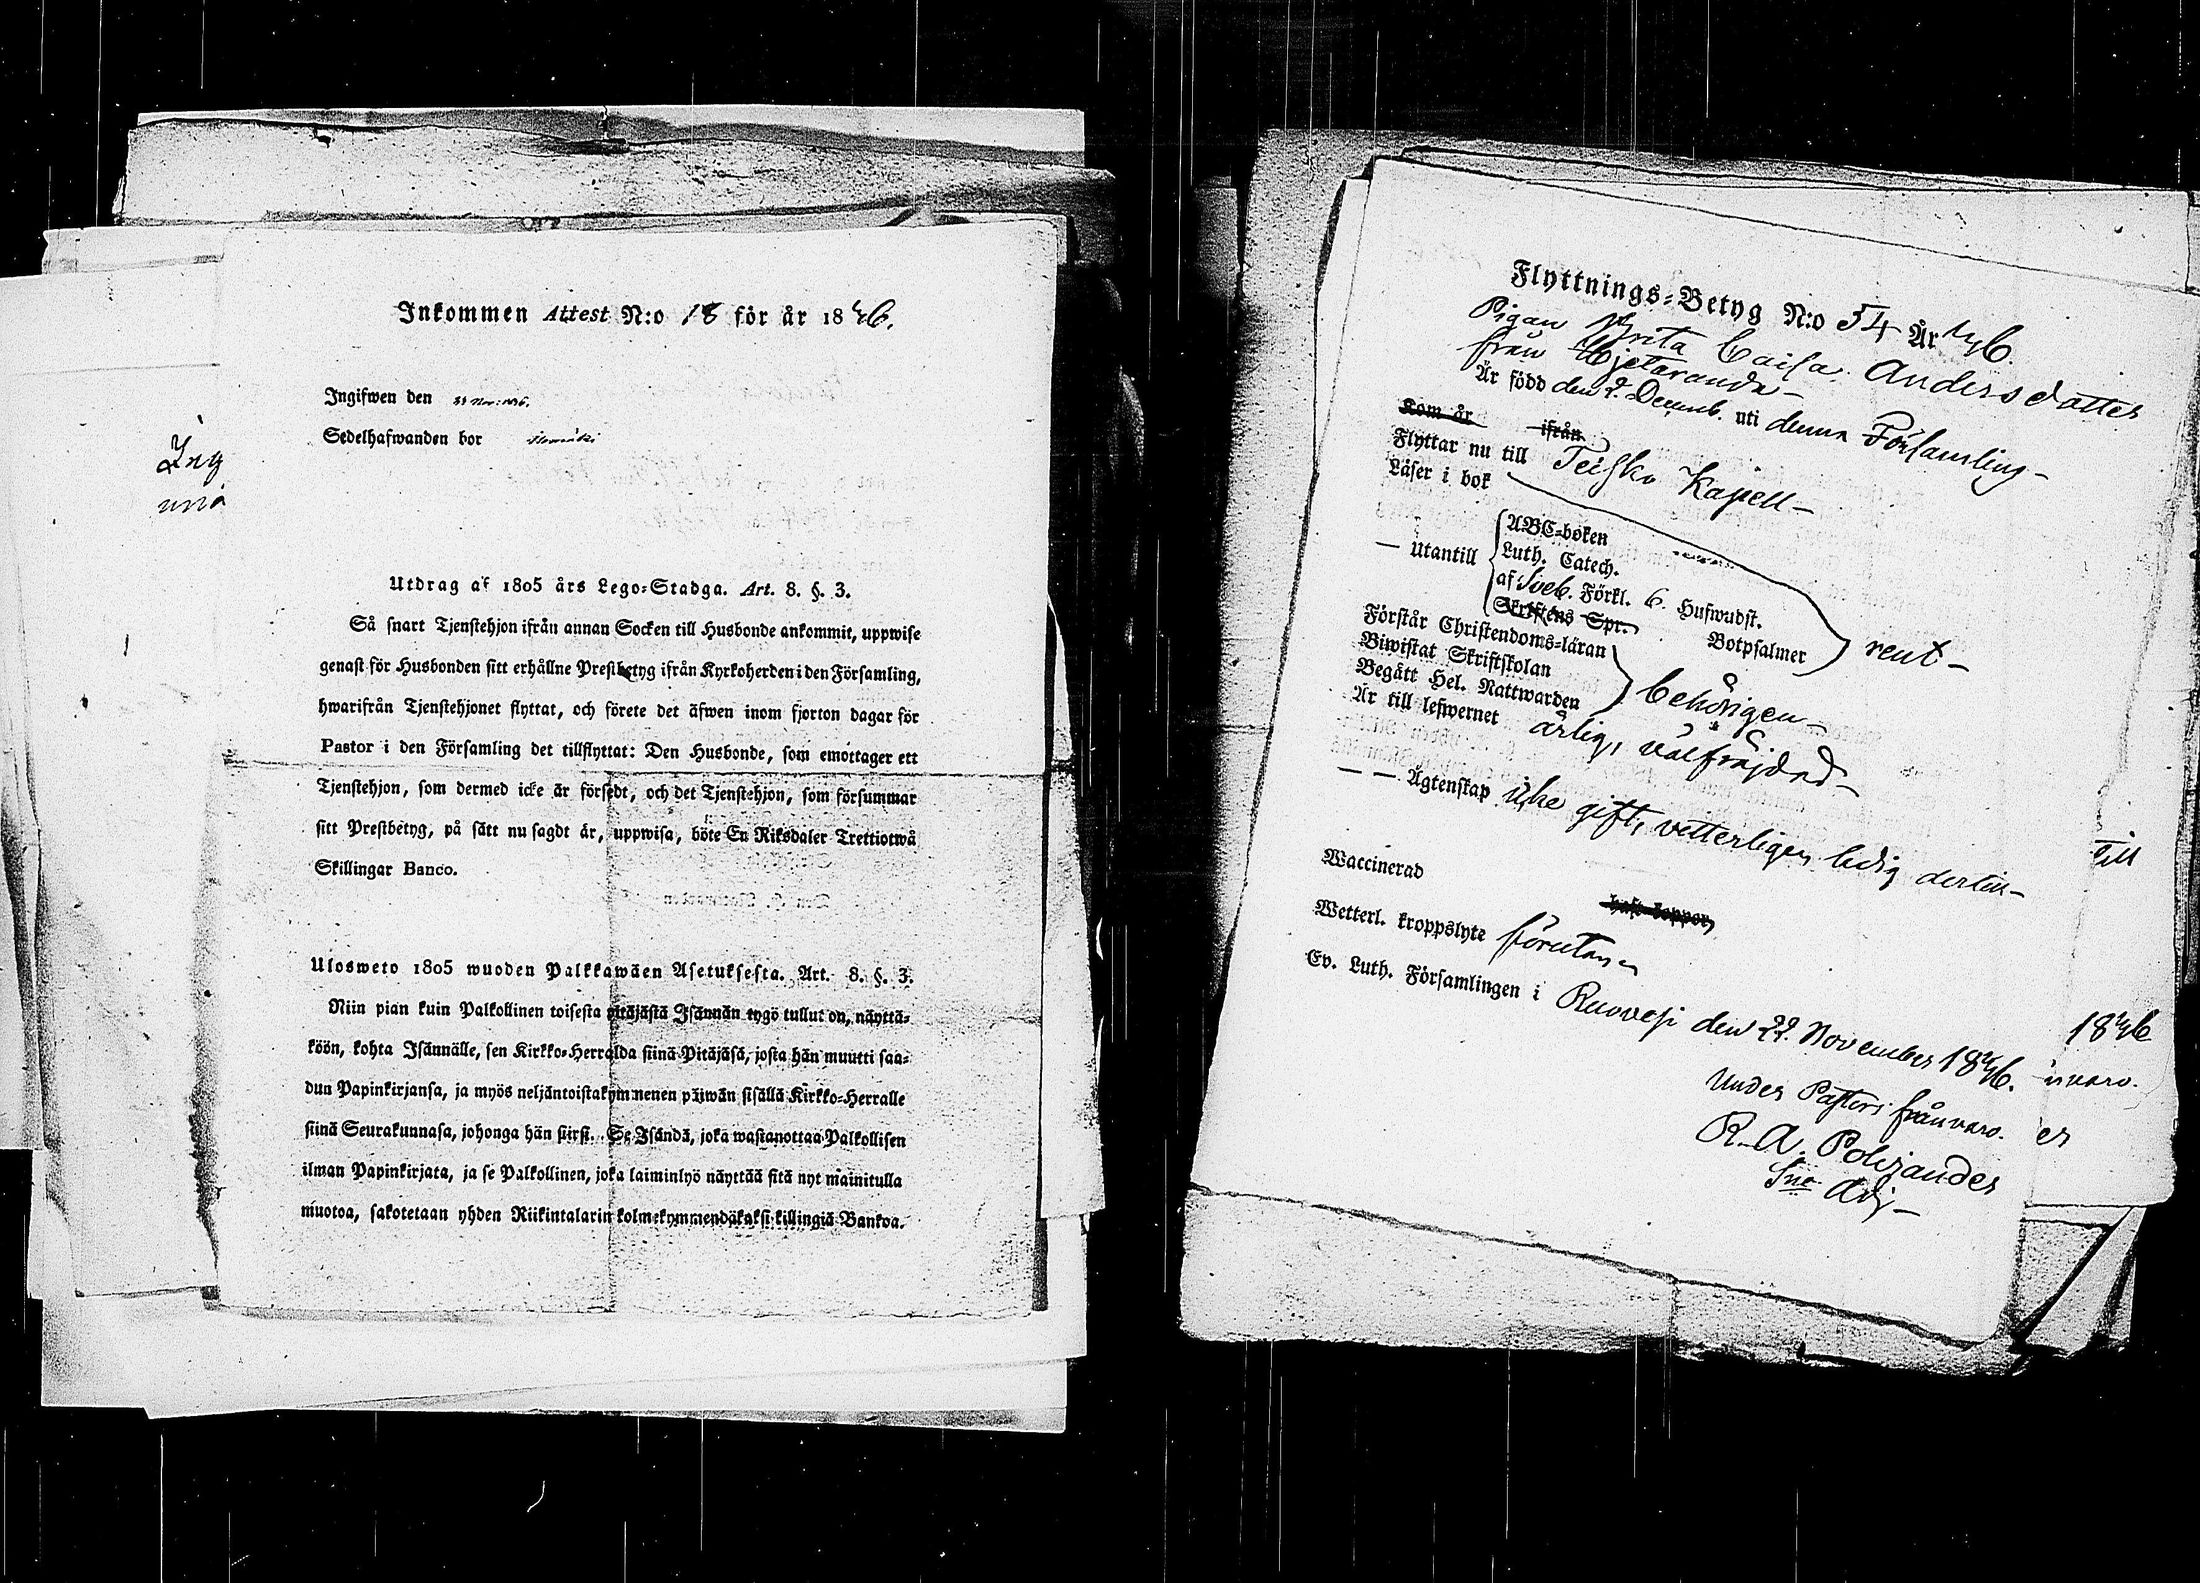 Inkommen Attest N:o 18 för år 1846.
Ingifwen den Nov: 1846.
Sedelhafwanden bor
Ing
Utdrag af 1805 års Lego-Stadga. Art. 8. §. 3.
Så snart Tjenstehjon ifrån annan Socken till Husbonde ankommit, uppwise
genast för Husbonden sitt erhållne Prestbetyg ifrån Kyrkoherden i den Församling,
hwarifrån Tjenstehjonet flyttat, och förete det äfwen inom fjorton dagar för
Pastor i den Församling det tillflyttat: Den Husbonde, som emottager ett
Tjenstehjon, som dermed icke är försedt, och det Tjenstehjon, som försummar
sitt Prestbetyg, på sätt nu sagdt är, uppwisa, böte En Riksdaler Trettiotwå
Skillingar Banco.
Ulosweto 1805 wuoden Palkkawäen Asetuksesta. Art. 8. §. 3.
Niin pian kuin Palkollinen toisesta pitäjästä Isännän tygö tullut on, näyttä-
köön, kohta Isännälle, sen Kirkko-Herralda siinä Pitäjäsä, josta hän muutti saa-
dun Papinkirjansa, ja myös neljäntoistakymmenen päiwän sisällä Kirkko-Herralle
siinä Seurakunnasa, johonga hän siirsi. Se Isändä, joka wastanottaa Palkollisen
ilman Papinkirjata, ja se Palkollinen, joka laiminlyö näyttää sitä nyt mainitulla
muotoa, sakotetaan yhden Riikintalarin kolmekymmendäkaksi killingiä Bankoa.
Flyttnings-Betyg N:o 54 År 1846.
Pigan Brita Caisa Andersdatter
från
Är född den 2. Decemb. uti denna Församling-
Kom år ifrån
Flyttar nu till Teisko Kapell-
Läser i bok
— Utantill
ABC-boken
Luth. Catech.
af Sveb. Förkl. 6. Hufwudst.
Skriftens Spr. Botpsalmer
rent-
Förstår Christendoms-läran
Biwistat Skriftskolan
Begått Hel. Nattwarden
behörigen-
Är till lefwernet ärlig, välfräjdad-
— — Ägtenskap icke gift, vetterligen ledig dertill-
Waccinerad
haft koppor
Wetterl. kroppslyte förutan
Ev. Luth. Församlingen i Ruovesi den 22. November 1846.
Under Pastors frånvaro.
R. A. Polviander
Sne Adj-
till
1846
nvaro.
er